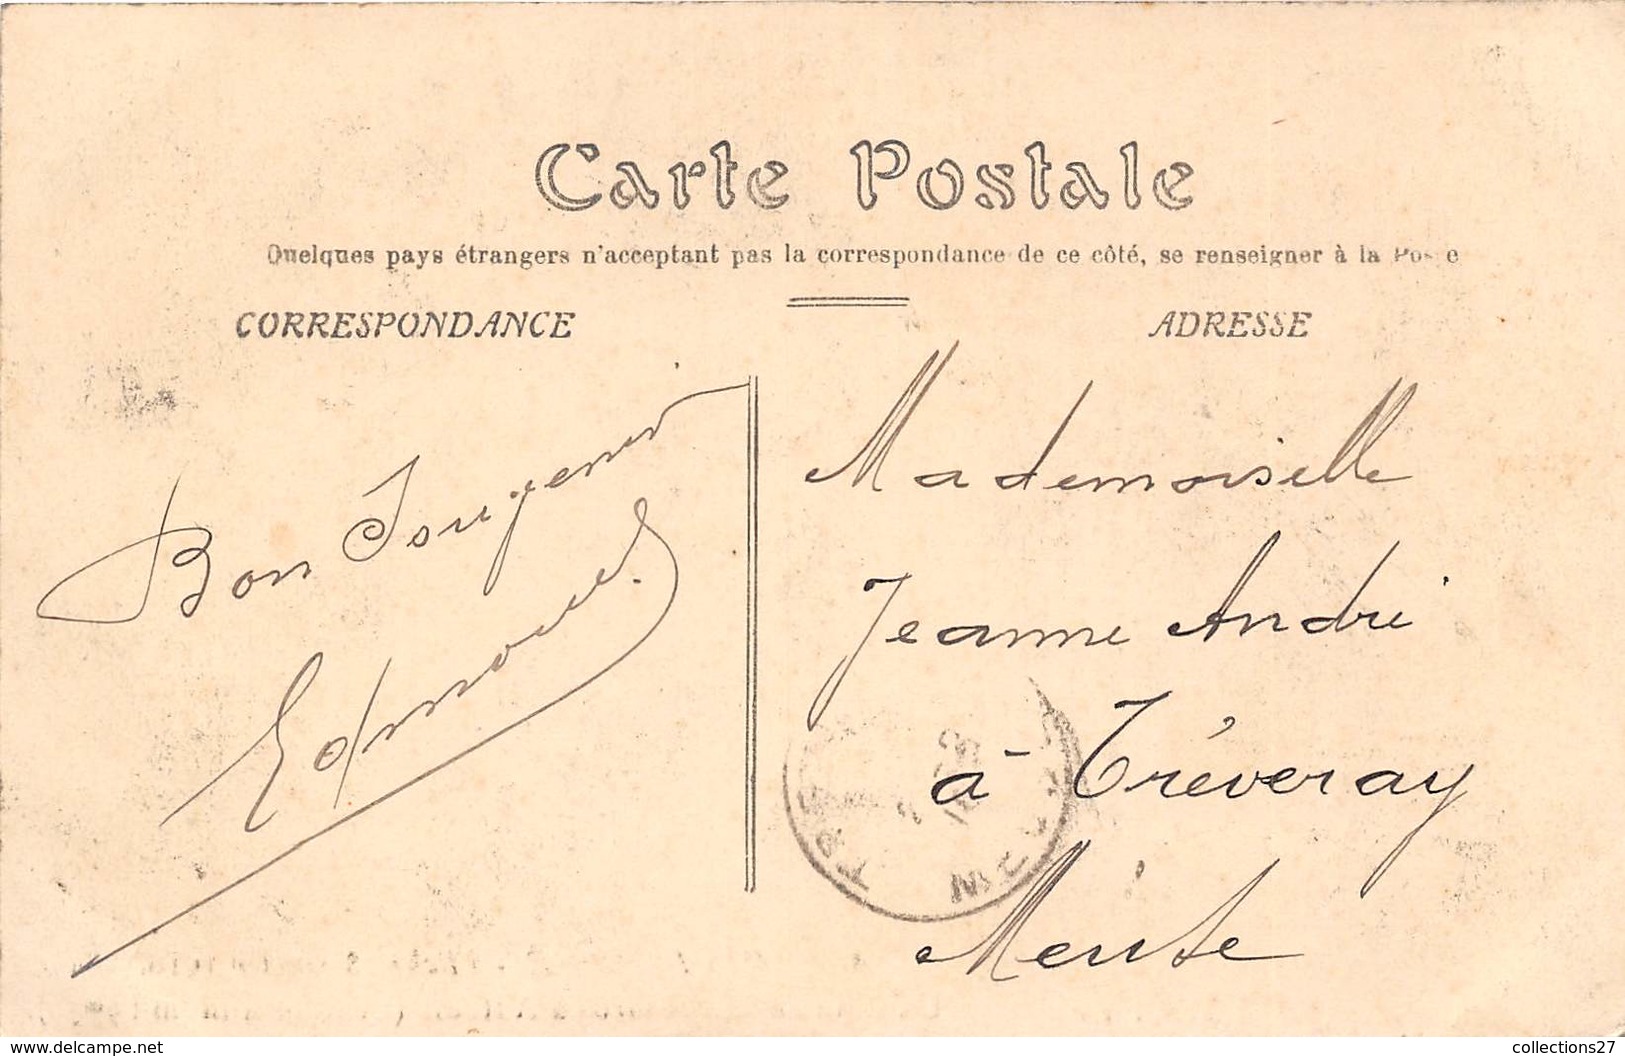 Carte Postale
Quelques pays étrangers n'acceptant pas la correspondance de ce côté, se renseigner à la Poste
CORRESPONDANCE
ADRESSE
Bon Souvenir
Edmond
Mademoiselle
Jeanne André
à Tréveray
Meuse
www.delcampe.net
collections27